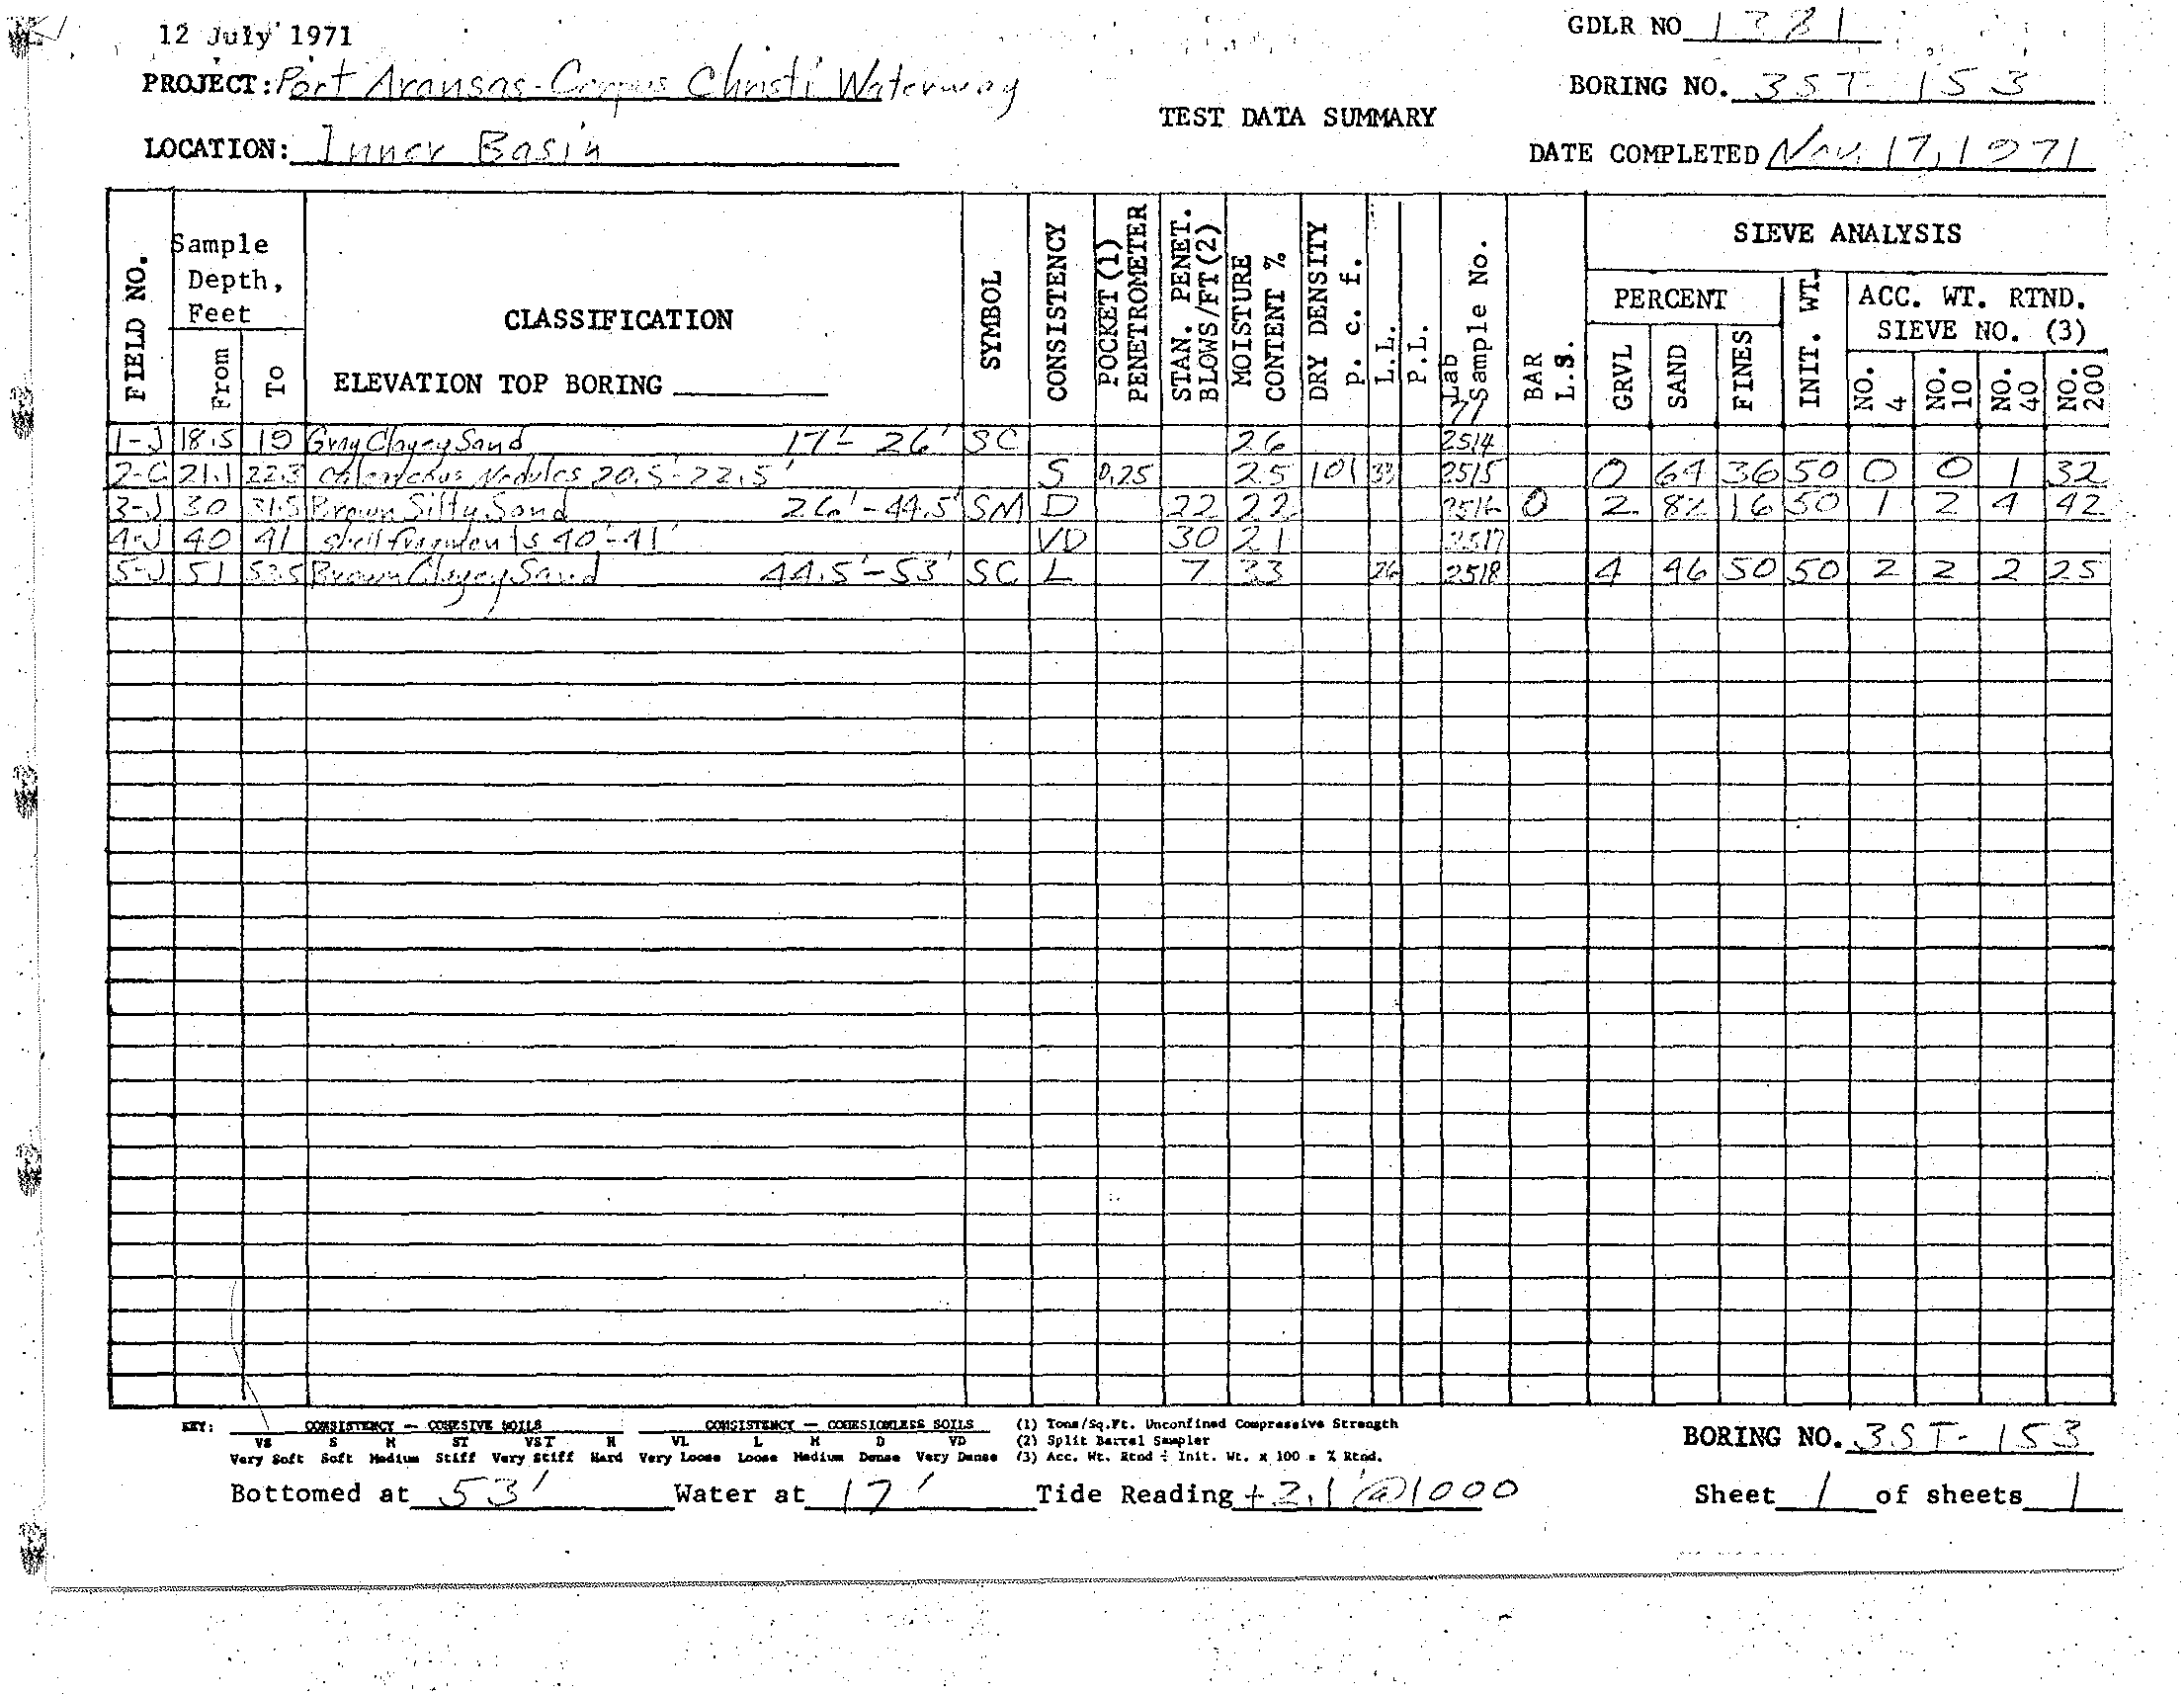 12 July 1971
GDLR NO 1381
PROJECT: Port Aransas-Corpus Christi Waterway
BORING NO. 3ST-153
TEST DATA SUMMARY
LOCATION: Inner Basin
DATE COMPLETED Nov. 17, 1971
FIELD NO.
Sample Depth, Feet
From
To
CLASSIFICATION
ELEVATION TOP BORING
SYMBOL
CONSISTENCY
POCKET (1) PENETROMETER
STAN. PENET. BLOWS/FT (2)
MOISTURE CONTENT %
DRY DENSITY p. c. f.
L.L.
P.L.
Lab Sample No.
71
BAR L.S.
SIEVE ANALYSIS
PERCENT
GRVL
SAND
FINES
INIT. WT.
ACC. WT. RTND.
SIEVE NO. (3)
NO. 4
NO. 10
NO. 40
NO. 200
1-J 18.5 19 Gray Clayey Sand 17'-26' SC 26 2514
2-C 21.1 22.3 Calcareous Nodules 20.5'-22.5' S 0.25 25 101 33 2515 0 64 36 50 0 0 1 32
3-J 30 31.5 Brown Silty Sand 26'-44.5' SM D 22 22 2516 0 2 82 16 50 1 2 4 42
4-J 40 41 shell fragments 40'-41' VD 30 21 2517
5-J 51 53.5 Brown Clayey Sand 44.5'-53' SC L 7 33 26 2518 4 46 50 50 2 2 2 25
KEY: CONSISTENCY — COHESIVE SOILS CONSISTENCY — COHESIONLESS SOILS (1) Tons/Sq.Ft. Unconfined Compressive Strength
VS S M ST VST H VL L M D VD (2) Split Barrel Sampler
Very Soft Soft Medium Stiff Very Stiff Hard Very Loose Loose Medium Dense Very Dense (3) Acc. Wt. Rtnd ÷ Init. Wt. x 100 = % Rtnd.
BORING NO. 3ST-153
Bottomed at 53' Water at 17' Tide Reading +2.1' @1000 Sheet 1 of sheets 1